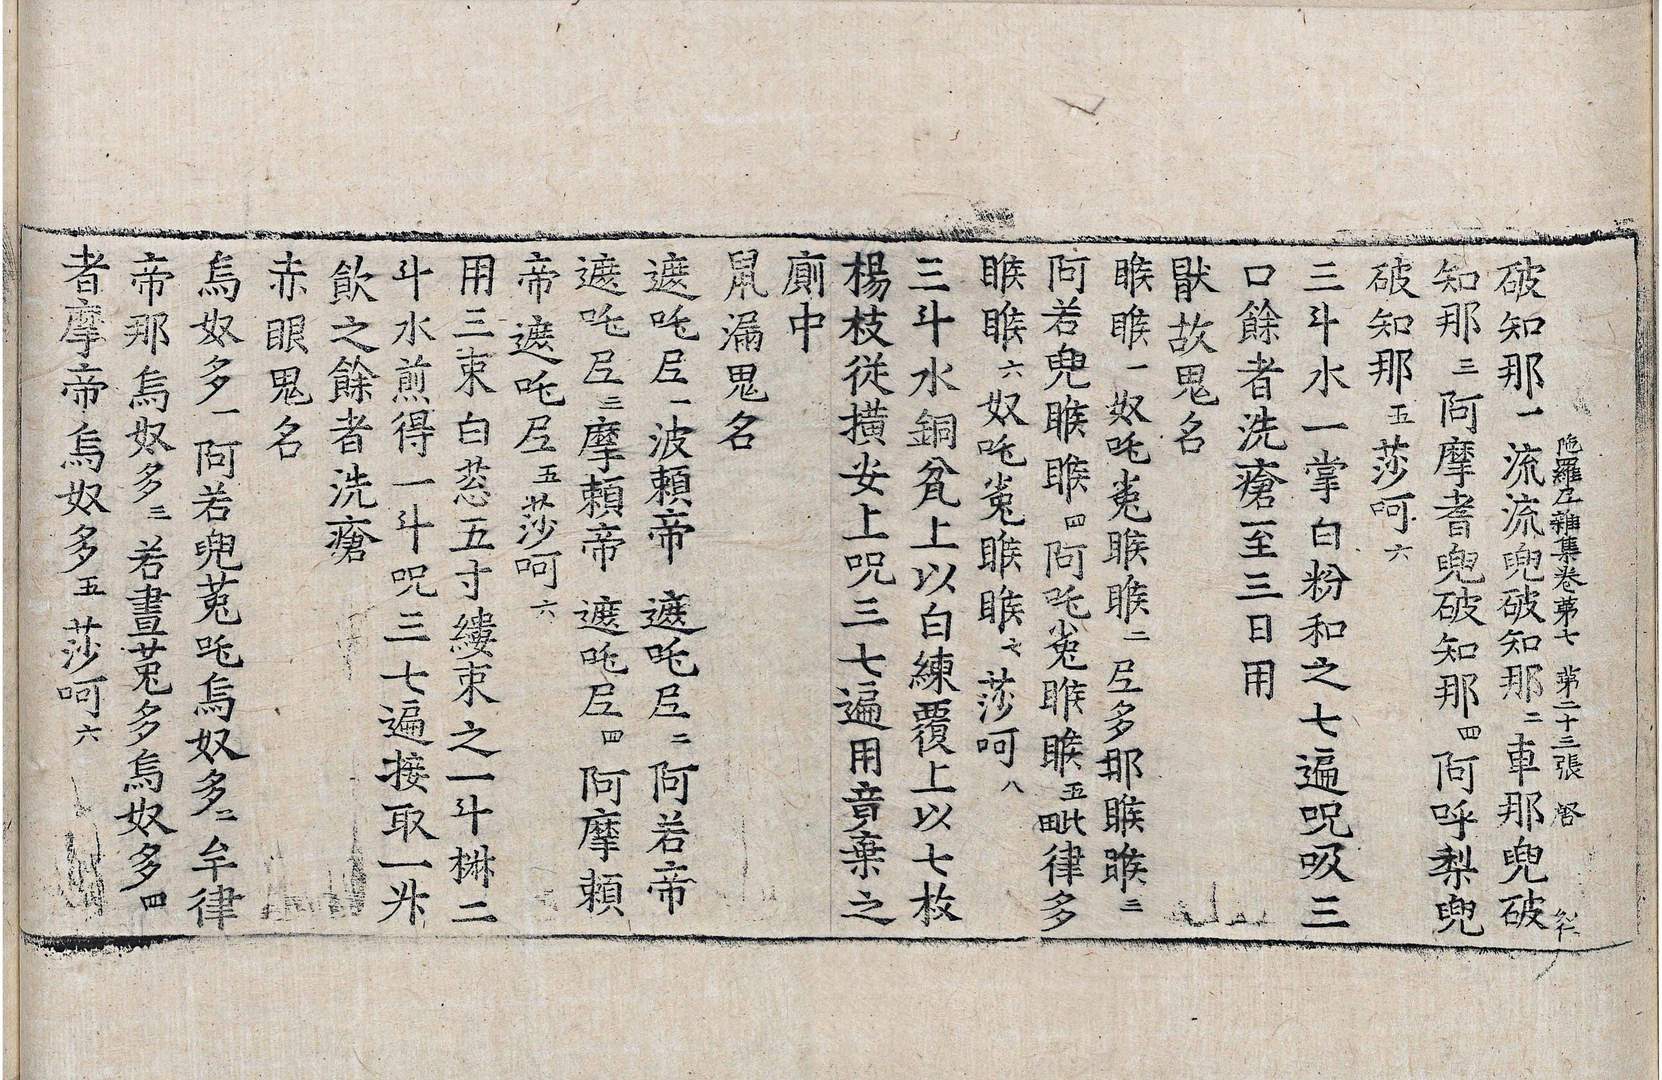 陁羅尼雜集卷第七　第二十三張　啓
破知那一流流兜破知那二車那兜破
知那三阿摩耆兜破知那四阿呼梨兜
破知那五莎呵六
三斗水一掌白粉和之七遍呪吸三
口餘者洗瘡至三日用
猒故鬼名
睺睺一奴吒㝹睺睺二尼多耶睺睺三
阿若兜睺睺四阿吒㝹睺睺五毗律多
睺睺六奴吒㝹睺睺七莎呵八
三斗水銅瓫上以白練覆上以七枚
楊枝從撗安上呪三七遍用竟棄之
廁中
鼠漏鬼名
遮吒尼一波頼帝　遮吒尼二阿若帝
遮吒尼三摩頼帝　遮吒尼四阿摩頼
帝遮吒尼五莎呵六
用三束白葱五寸縷束之一斗㪷二
斗水煎得一斗呪三七遍接取一升
飲之餘者洗瘡
赤眼鬼名
烏奴多一阿若兜菟吒烏奴多二牟律
帝那烏奴多三若晝菟多烏奴多四
者摩帝烏奴多五莎呵六